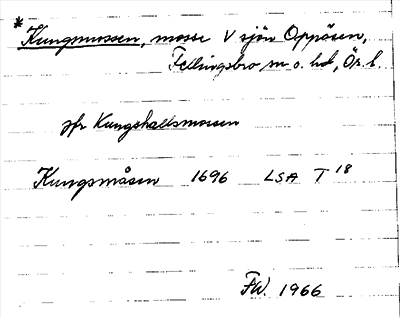 * Kungsmossen, mosse V sjön Oppåsen,
Fellingsbro sn o. hd, Ör. l.
jfr Kungshallsmossen
Kungsmåsen 1696 LSA T 18
FW. 1966